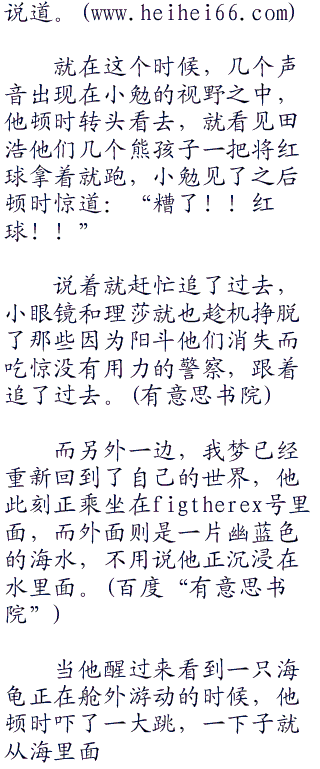 说道。(www.heihei66.com)
就在这个时候，几个声
音出现在小勉的视野之中，
他顿时转头看去，就看见田
浩他们几个熊孩子一把将红
球拿着就跑，小勉见了之后
顿时惊道：“糟了！！红
球！！”
说着就赶忙追了过去，
小眼镜和理莎就也趁机挣脱
了那些因为阳斗他们消失而
吃惊没有用力的警察，跟着
追了过去。(有意思书院)
而另外一边，我梦已经
重新回到了自己的世界，他
此刻正乘坐在figtherex号里
面，而外面则是一片幽蓝色
的海水，不用说他正沉浸在
水里面。(百度“有意思书
院”)
当他醒过来看到一只海
龟正在舱外游动的时候，他
顿时吓了一大跳，一下子就
从海里面